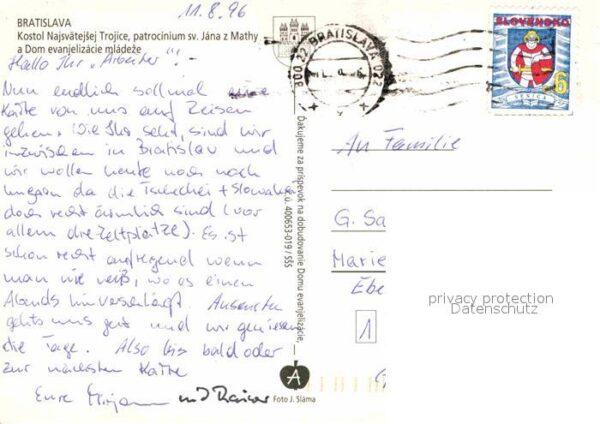 11.8.96
BRATISLAVA
Kostol Najsvätejšej Trojice, patrocínium sv. Jána z Mathy
a Dom evanjelizácie mládeže
Hallo Ihr „Arbeiter"!-
Nun endlich soll mal eine
Karte von uns auf Reisen
gehen. Wie Ihr seht, sind wir
inzwischen in Bratislav und
wir wollen heute noch nach
Ungarn da die Tschechei + Slowakei
doch recht ärmlich sind (vor
allem die Zeltplätze). Es ist
schon recht aufregend wenn
man nie weiß, wo es einen
Abends hinverschlägt. Ansonsten
gehts uns gut und wir geniesen
die Tage. Also bis bald oder
zur nächsten Karte
Eure Mirjam und Rainer
Ďakujeme za príspevok na dobudovanie Domu evanjelizácie,
č. ú. 400653-019 / SSŠ
A
Foto J. Sláma
BRATISLAVA 022
800 22
SLOVENSKO
6
SENICA
An Familie
G. Sa
Marie
Ebe
1
privacy protection
Datenschutz